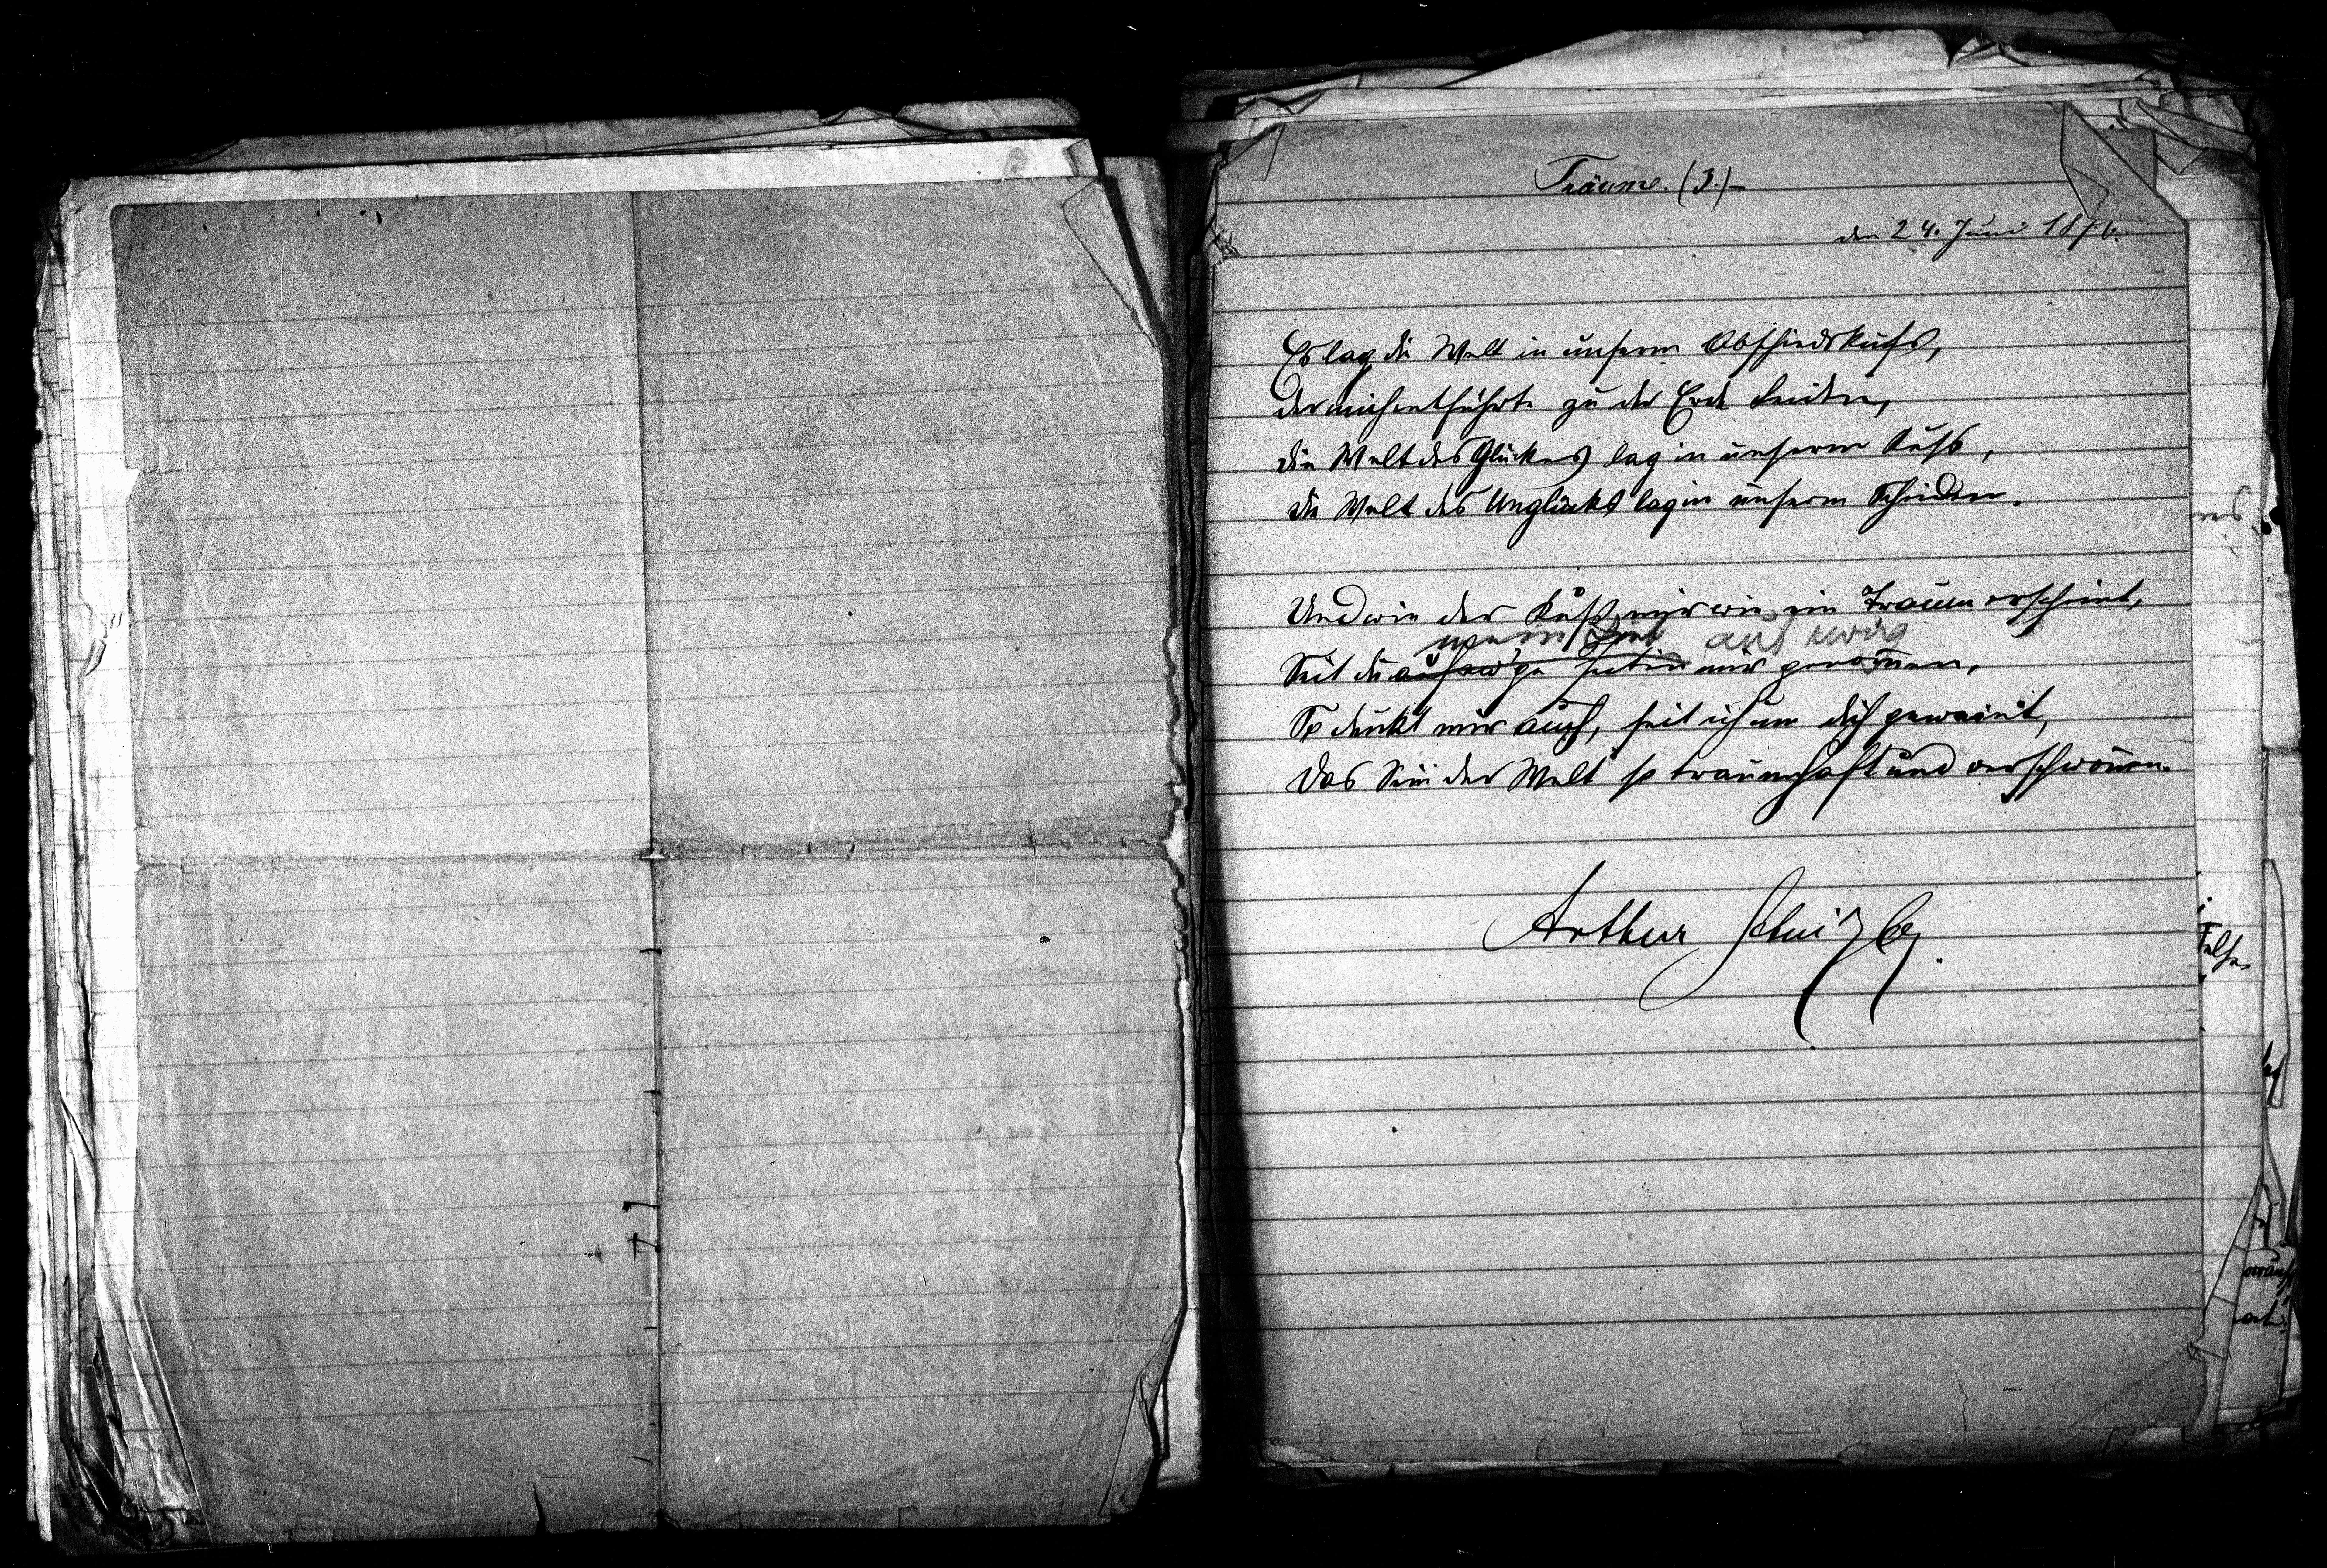 Träume. (3.)–
den 24. Juni 1876.
Es lag die Welt in unserm Abschiedskuss,
der mich entführte zu der Erde Leiden,
die Welt des Glückes lag in unserm Kuss,
die Welt des Unglücks lag in unserm Scheiden.
Und wie der Kuß mir wie ein Traum erscheint,
mein Lieb auf ewig
Seit du auf ew'ge mir genom̅en,
So dünkt mir auch, seit ich um dich geweint,
Das Sein der Welt so traumhaft und verschwom̅en.
Arthur Schnitzler.